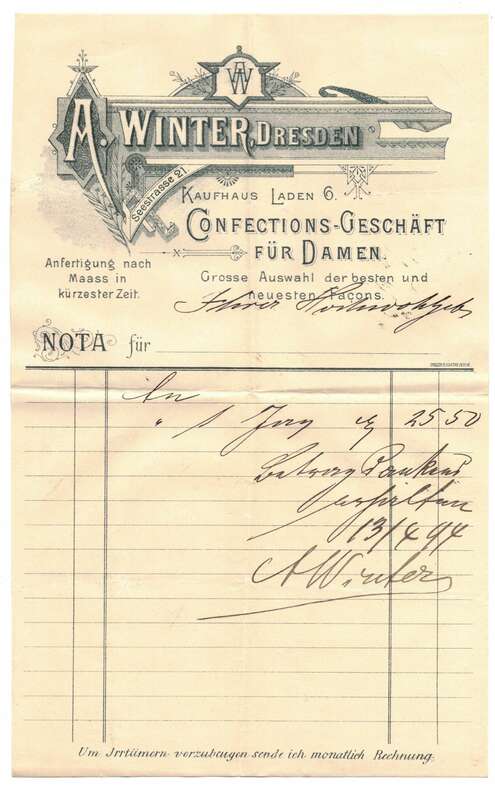 AW
A. WINTER, DRESDEN
Seestrasse 21.
KAUFHAUS LADEN 6.
CONFECTIONS-GESCHÄFT
FÜR DAMEN.
Anfertigung nach
Maass in
kürzester Zeit.
Grosse Auswahl der besten und
neuesten Façons.
Ihrer Hochwohlgeb
NOTA für
An
" 1 Jaq 25 50
Betrag dankend
erhalten
13/4 94
A Winter
Um Irrtümern vorzubeugen sende ich monatlich Rechnung.